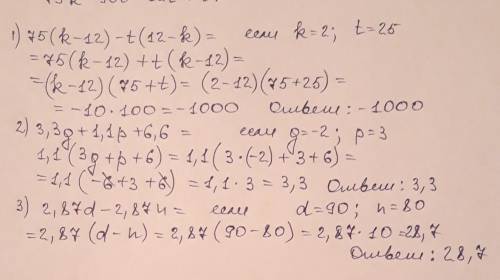 1) 75(k-12)-t(12-k)= если k=2; t=25
=75(k-12)+t(k-12)=
=(k-12)(75+t)=(2-12)(75+25)=
=-10·100=-1000 Ответ: -1000
2) 3,3g+1,1p+6,6= если g=-2; p=3
1,1(3g+p+6)=1,1(3·(-2)+3+6)=
=1,1(-6+3+6)=1,1·3=3,3 Ответ: 3,3
3) 2,87d-2,87n= если d=90; n=80
=2,87(d-n)=2,87(90-80)=2,87·10=28,7
Ответ: 28,7